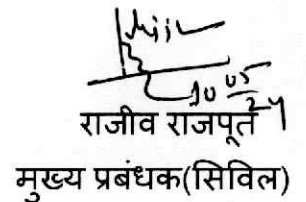 30/05/24
राजीव राजपूत
मुख्य प्रबंधक(सिविल)